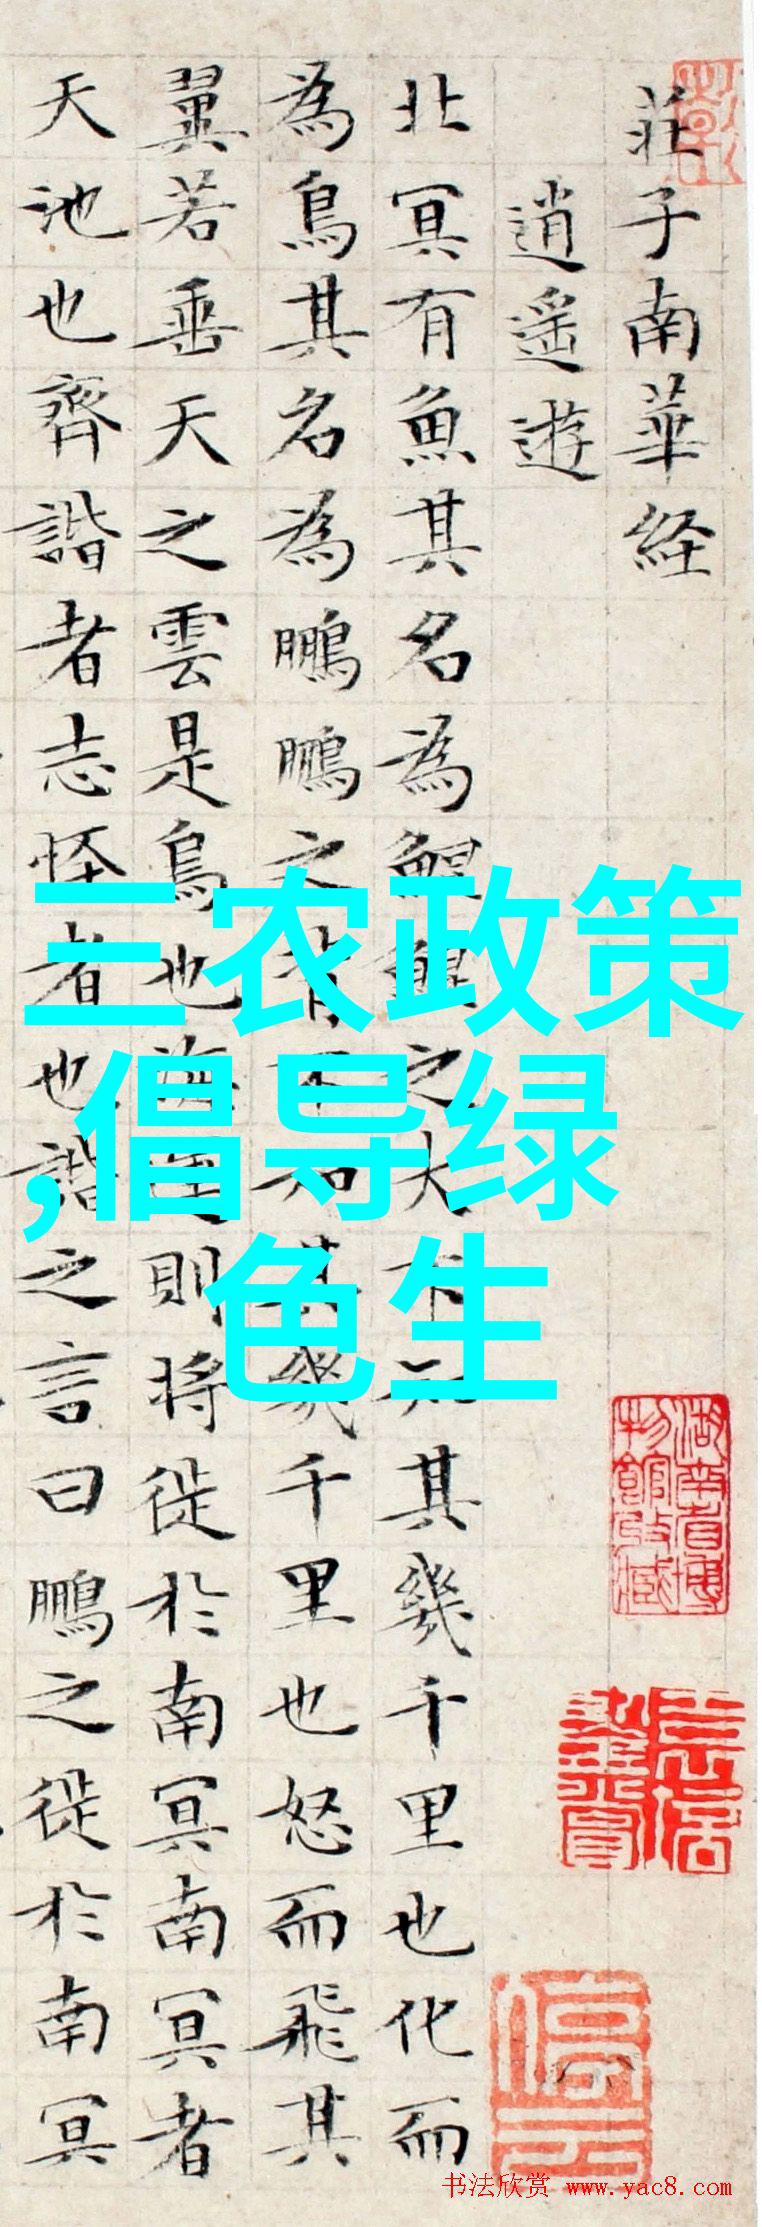 莊子南華経
逍遥遊
北冥有魚其名為鯤鯤之大不知其幾千里也化而
為鳥其名為鵬鵬之背不知其幾千里也怒而飛其
翼若垂天之雲是鳥也海運則将徙於南冥南冥者
天池也齊諧者志怪者也諧之言曰鵬之徙於南冥
三农政策
,倡导绿
色生
湖南省博
物館收藏
书法欣赏 www.yac8.com